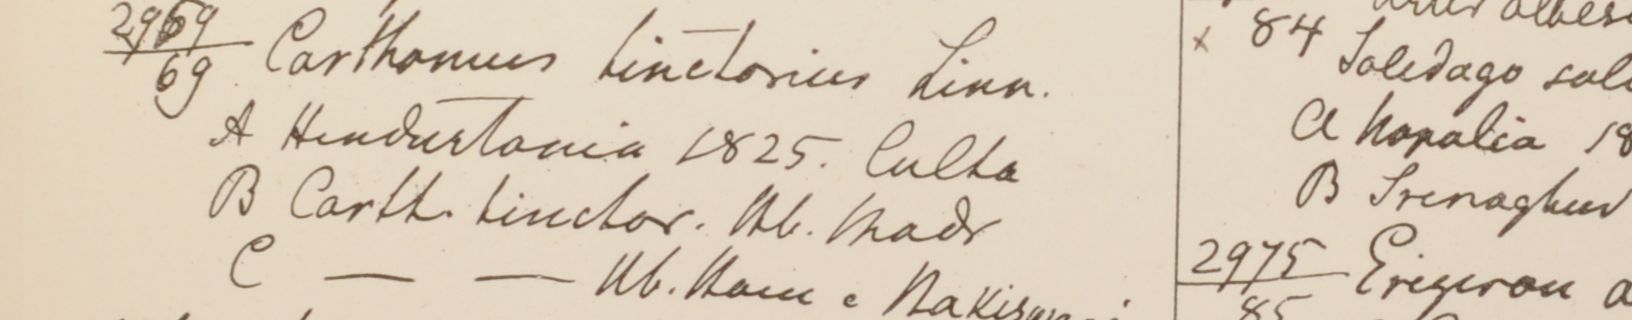 2969
69 Carthamus tinctorius Linn.
A Hindustania 1825. Culta
B Carth. tinctor. Hb. Madr
C — — Hb. Ham e
84 Solidago
A Napalia 18
B Srenaghur
2975 Erigeron a
85